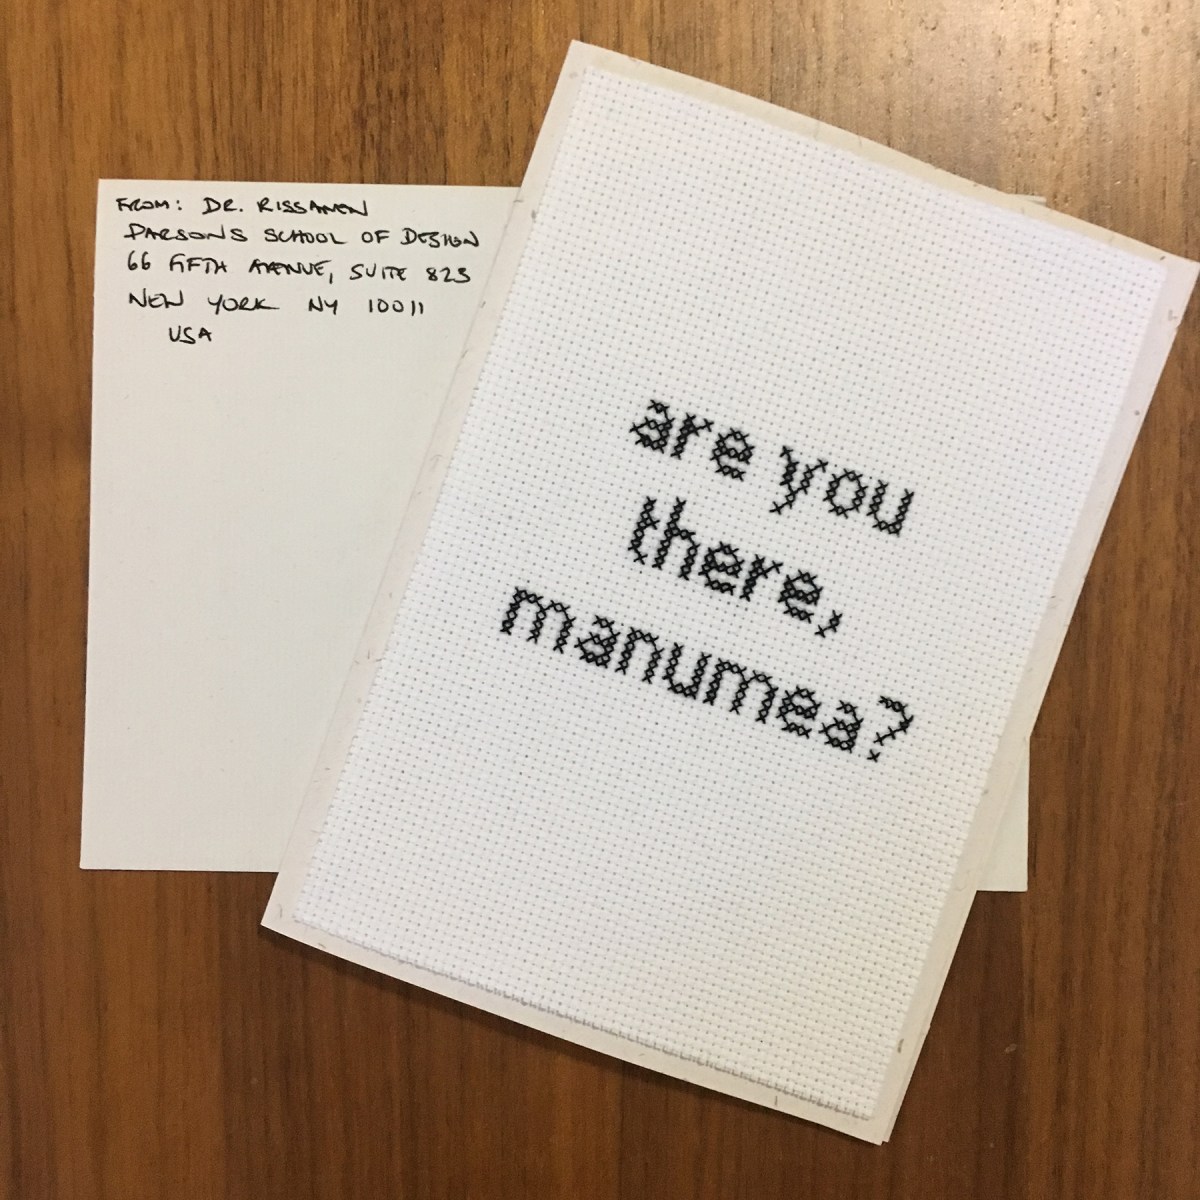 FROM: DR. RISSANEN
PARSONS SCHOOL OF DESIGN
66 FIFTH AVENUE, SUITE 823
NEW YORK NY 10011
USA
are you
there,
manumea?